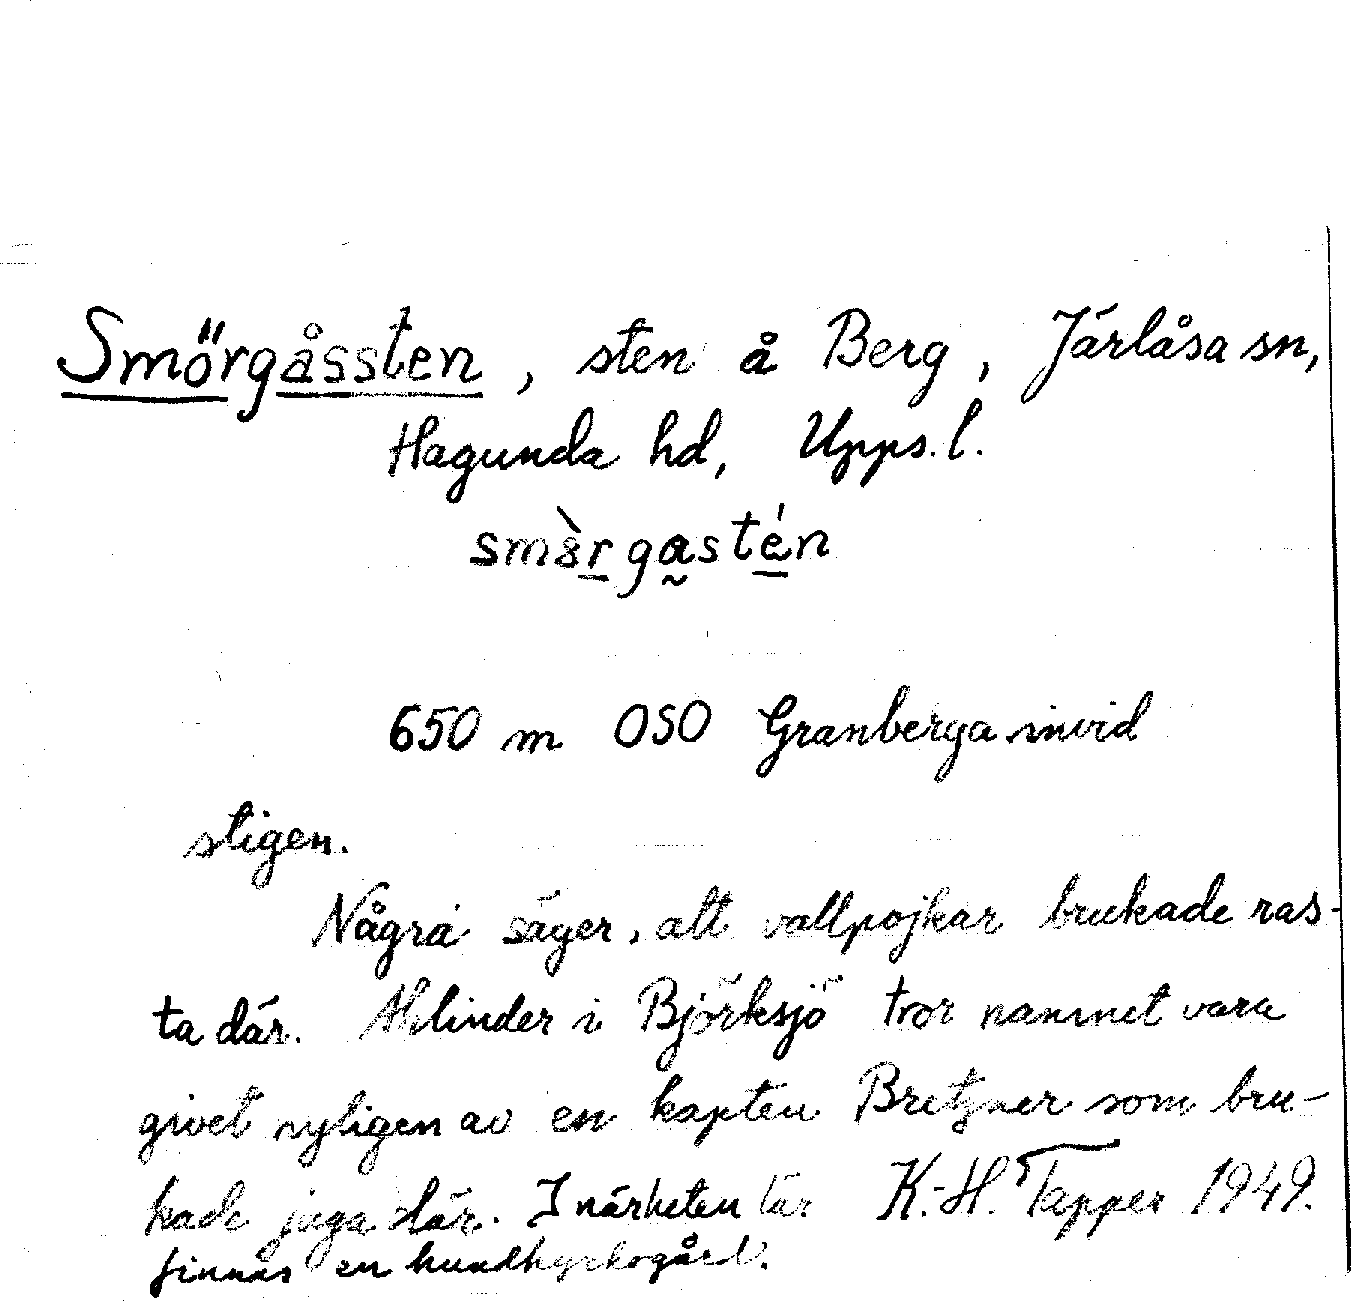 Smörgåssten, sten å Berg, Järlåsa sn,
Hagunda hd, Upps.l.
smörgastén
650 m OSO Granberga invid
stigen.
Några säger, att vallpojkar brukade ras-
ta där. Ahlinder i Björksjö tror namnet vara
givet nyligen av en kapten Bretzner som bru-
kade jaga där. I närheten lär K.-H. Tapper 1949.
finnas en hundkyrkogård.